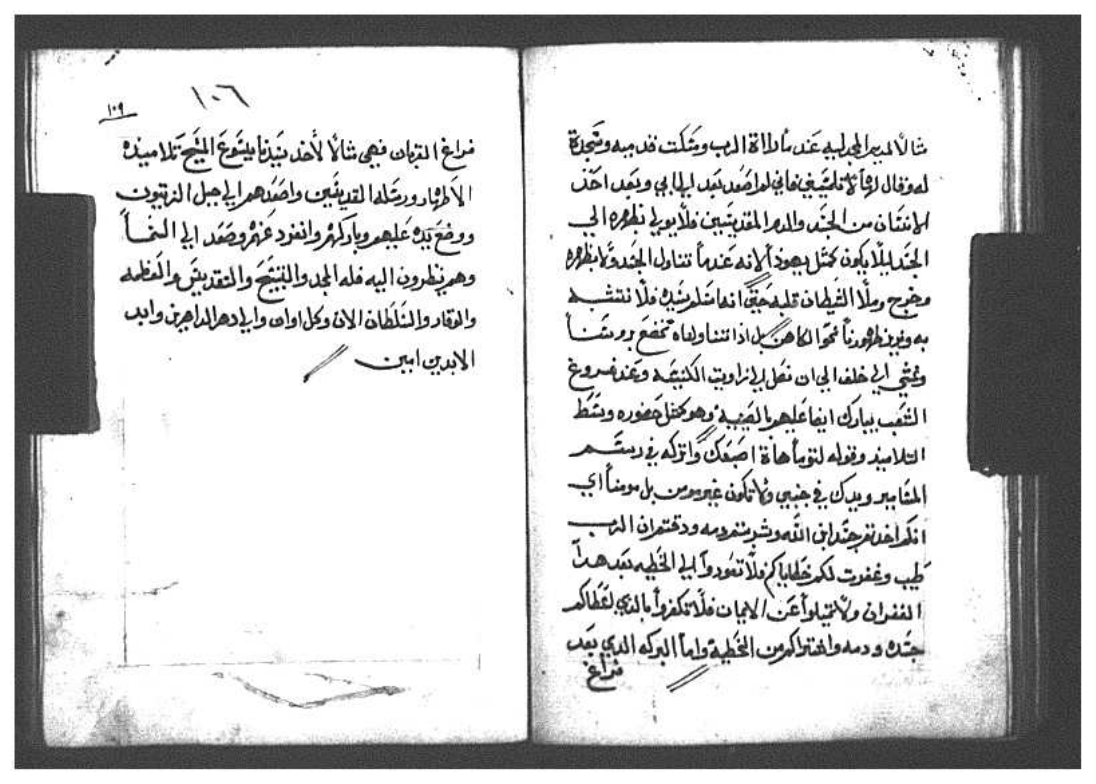 مثالًا لمريم المجدليه عندما رات الرب ومسكت قدميه وسجدة
له وقال لها لا تلمسيني فاني لم اصعد بعد الي ابي وبعد اخذ
الانسان من الجسد والدم المقديسين فلا يولي ظهره الي
الجسد ليلًا يكون كمثل يهوذا لانه عندما تناول الجسد ولا بظهره
وخرج وملا الشيطان قلبه حتي انه اسلم سيده فلا نتشبه
به وندير ظهورنا نحو الكاهن بل اذا تناولناه نخضع بروسنا
ونمشي الي خلف الي ان نصل الي زاوية الكنيسه وعند فروغ
الشعب يبارك ايضا عليهم بالصينية وهو كمثل حضوره وسط
التلاميذ وقوله لتوما هاة اصبعك واتركه في رسم
المسامير ويدك في جنبي ولا تكون غير مومن بل مومنا اي
انكم اخدتم جسد ابن الله وشربتم دمه ودقتم ان الرب
طيب وغفرت لكم خطاياكم فلا تعودوا الي الخطيه بعد هدا
الغفران ولا تميلوا عن الايمان فلا تكفروا بالدي اعطاكم
جسده ودمه واشتراكم من الخطية واما البركه الدي بعد
فراغ
١٠٩
١٠٦
فراغ القربان فهي مثالًا لأخد سيدنا يسوع المسيح تلاميذه
الاطهار ورسله القديسين واصعدهم الي جبل الزيتون
ووضع يده عليهم وباركهم وانفرد عنهم وصعد الي السما
وهم ينظرون اليه فله المجد والتسبيح والتقديس والعظمه
والوقار والسلطان الان وكل اوان والي دهر الداهرين وابد
الابدين امين